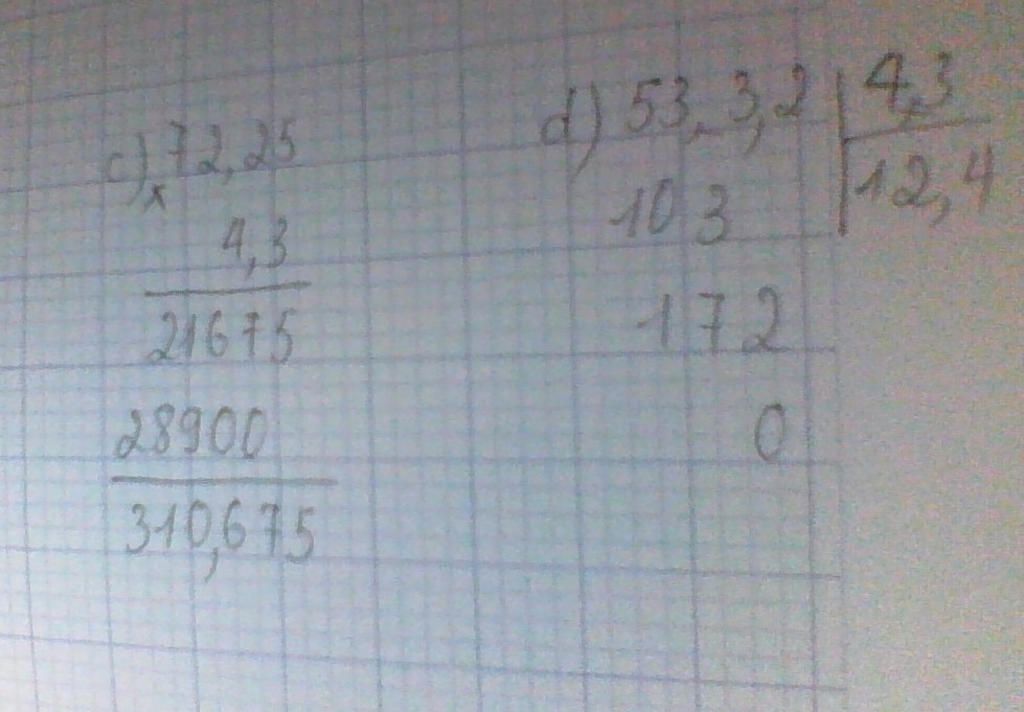 c) 72,25
x
4,3
21675
28900
310,675
d) 53,3,2 | 4,3
103 12,4
172
0